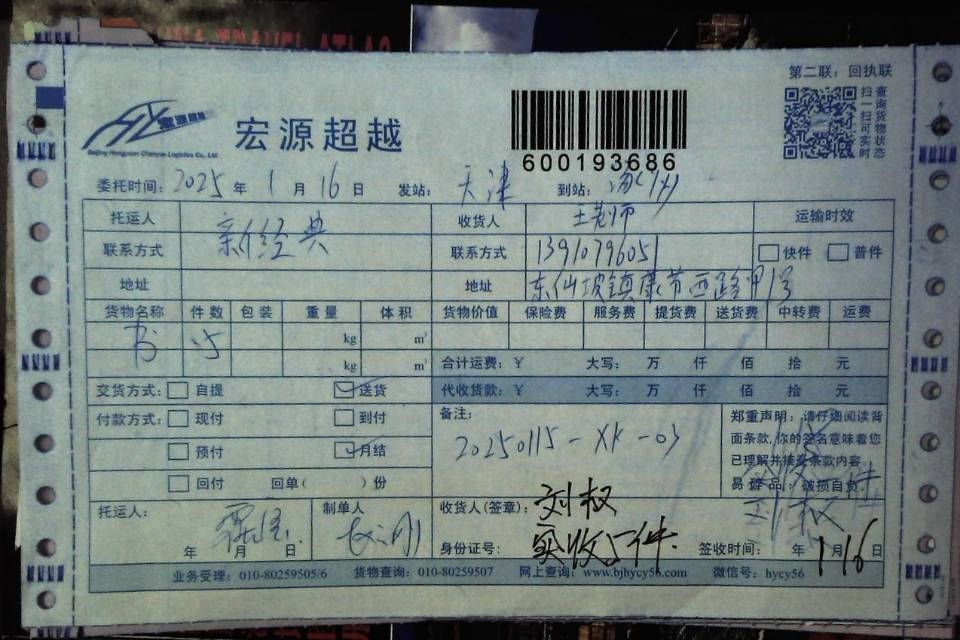 第二联：回执联
宏源超越
Beijing Hongyuan Chaoyue Logistics Co., Ltd
600193686
查询货物状态
扫一扫可实时
委托时间：2025 年 1 月 16 日 发站：天津 到站：
托运人 新经典 收货人 王老师 运输时效
联系方式 联系方式 13910796051 快件 普件
地址 地址 东仙坡镇康节西路甲1号
货物名称 件数 包装 重量 体积 货物价值 保险费 服务费 提货费 送货费 中转费 运费
书 kg m³
kg m³ 合计运费：¥ 大写： 万 仟 佰 拾 元
交货方式： 自提 送货 代收货款：¥ 大写： 万 仟 佰 拾 元
付款方式： 现付 到付 备注：
预付 月结 20250115-XK-03
回付 回单（ ）份
郑重声明：请仔细阅读背
面条款，你的签名意味着您
已理解并接受条款内容。
易碎品，破损自负
托运人： 制单人 收货人(签章)：刘权
年 月 日 身份证号： 实收 件 签收时间： 年 1 16 日
业务受理：010-80259505/6 货物查询：010-80259507 网上查询：www.bjhycy56.com 微信号：hycy56